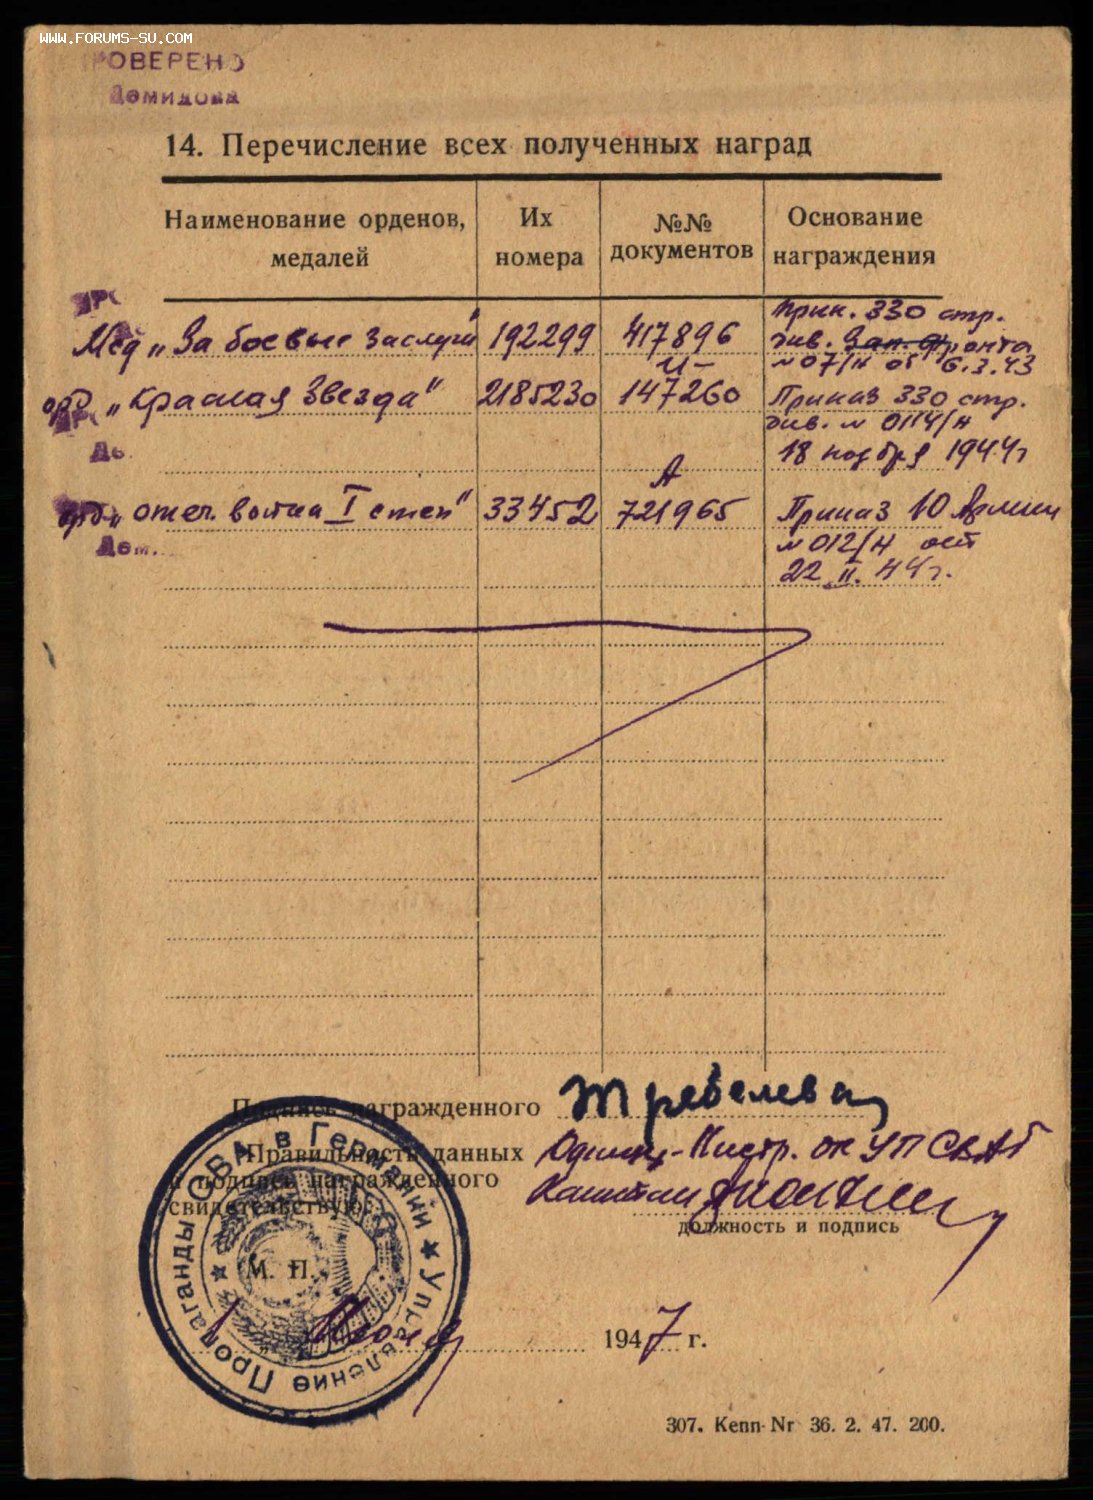 WWW.FORUMS-SU.COM
ПРОВЕРЕНО
Демидова
14. Перечисление всех полученных наград
Наименование орденов, медалей
Их номера
№№ документов
Основание награждения
Мед „За боевые заслуги" 192299 417896 Прик. 330 стр.
див. Зап. фронта
№ 07/н от 6.3.43
орд „Красная Звезда" 2185230 И- 147260 Приказ 330 стр.
див. № 0114/н
18 ноября 1944г
Де.
орд „отеч. война I степ" 33452 А 721965 Приказ 10 Армии
Дем.
№ 012/н от
22 II. 44г.
Подпись награжденного
Правильность данных
и подпись награжденного
свидетельствую:
УП СВАГ
Капитан
должность и подпись
М. П.
Управление Пропаганды СВА в Германии
1947 г.
307. Kenn-Nr 36. 2. 47. 200.